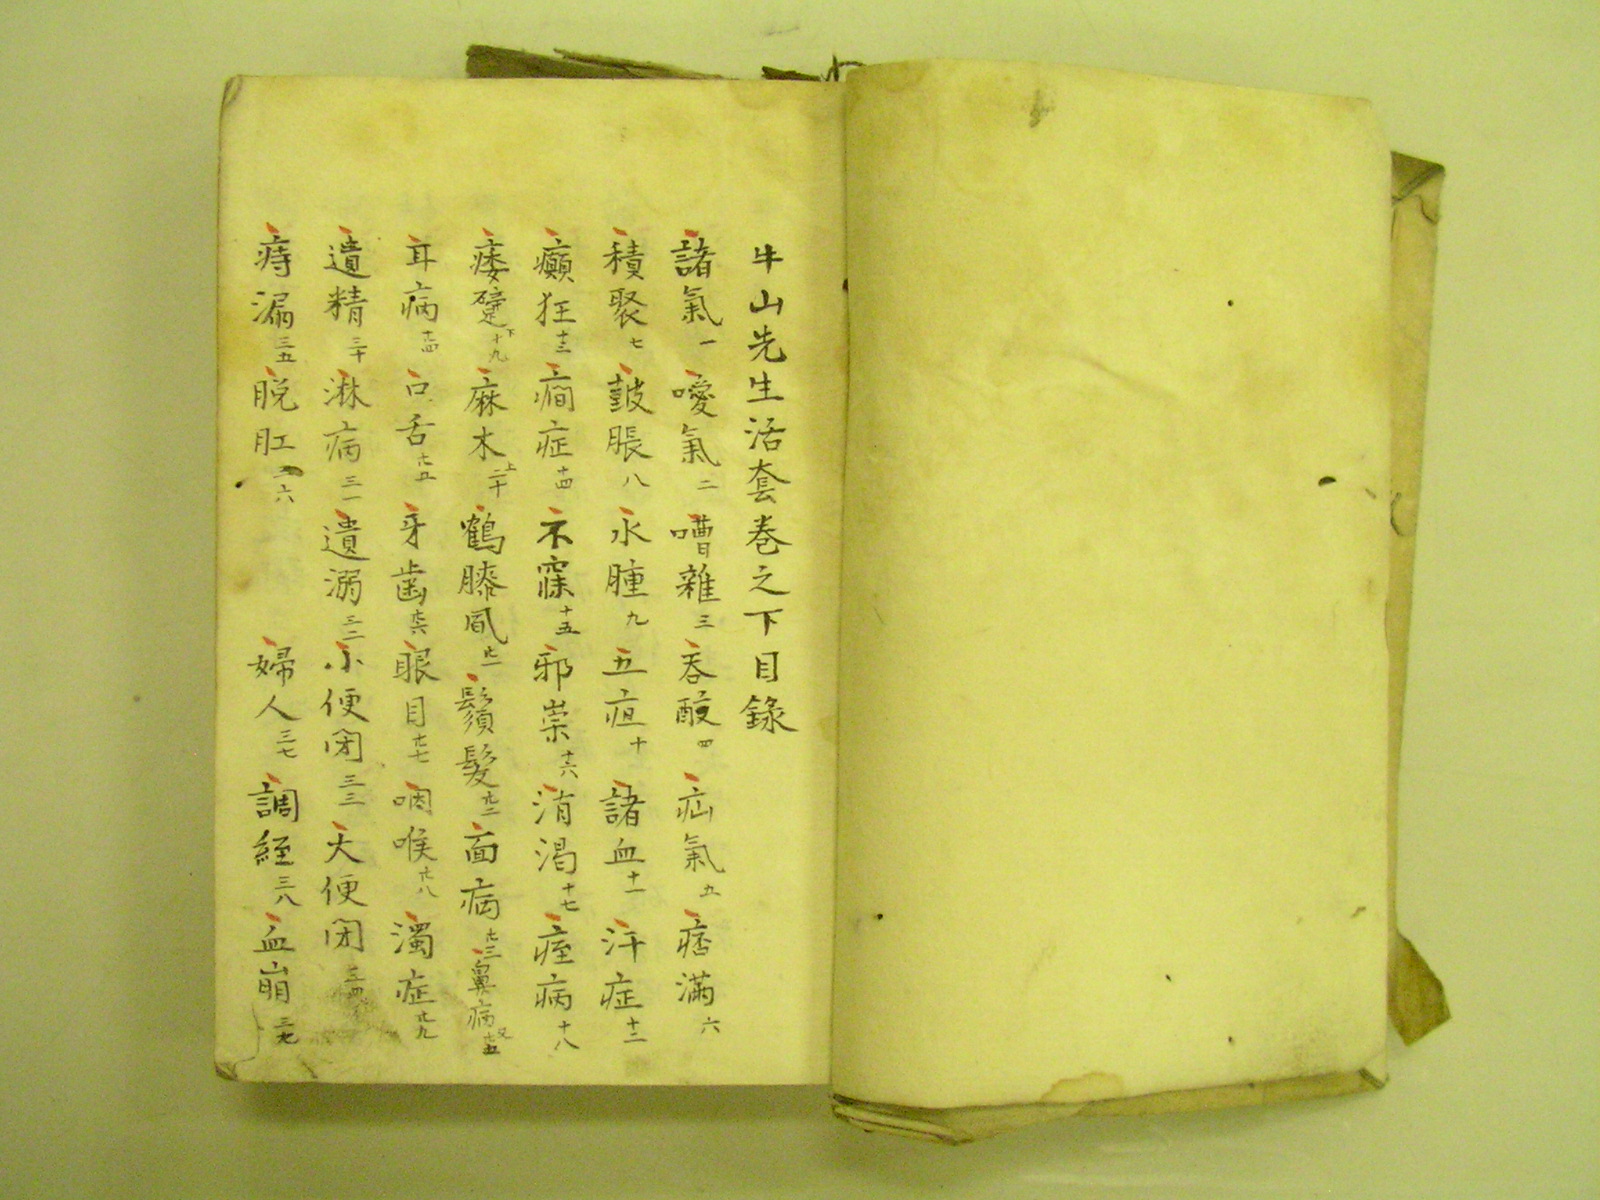 牛山先生活套巻之下目錄
諸氣一 噯氣二 嘈雜三 吞酸四 疝氣五 痞滿六
積聚七 鼓脹八 水腫九 五疸十 諸血十一 汗症十二
癲狂十三 癇症十四 不寐十五 邪祟十六 消渴十七 痓病十八
痿躄下十九 麻木上二十 鶴膝風廿一 鬚髮廿二 面病廿三 鼻病
耳病廿四 口舌廿五 牙歯廿六 眼目廿七 咽喉廿八 濁症廿九
遺精三十 淋病三一 遺溺三二 小便閉三三 大便閉三四
痔漏三五 脱肛三六 婦人三七 調経三八 血崩三九